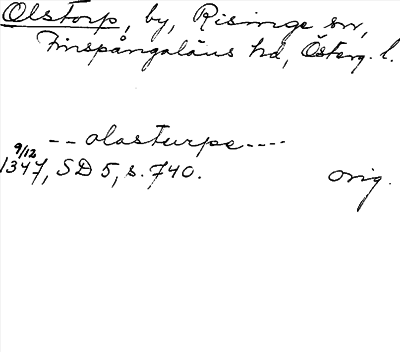 Olstorp, by, Risinge sn,
Finspångaläns hd, Österg. l.
-- olasturpe ----
9/12
1347, SD 5, s. 740. orig.